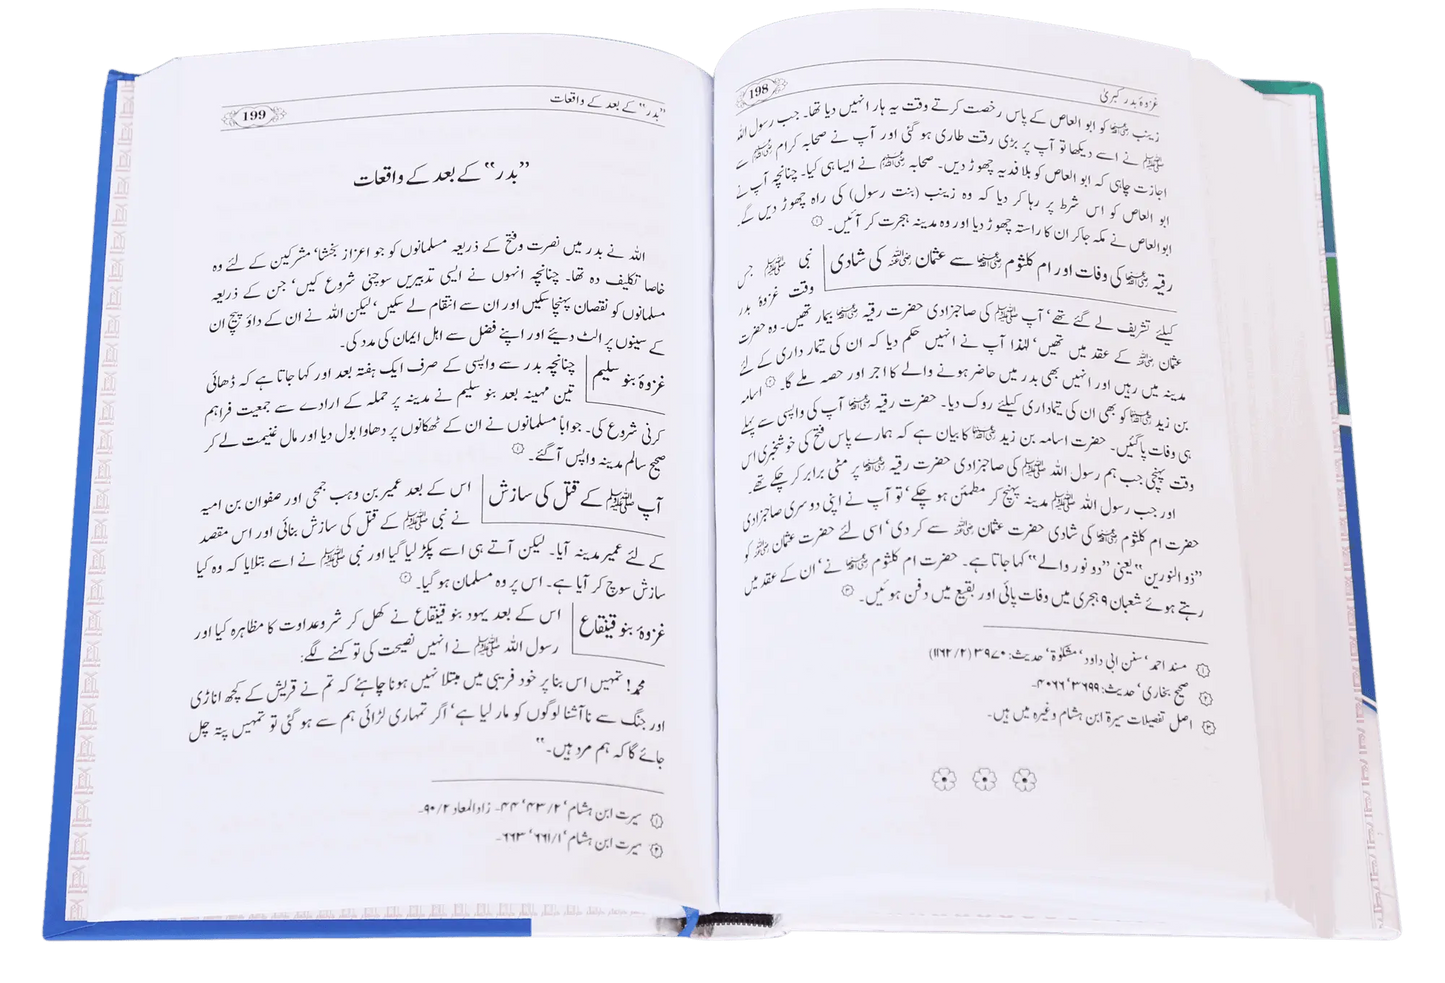 198
غزوۂ بدر کبریٰ
زینب رضی اللہ عنہا کو ابو العاص کے پاس رخصت کرتے وقت یہ ہار انہیں دیا تھا۔ جب رسول اللہ
ﷺ نے اسے دیکھا تو آپ پر بڑی رقت طاری ہو گئی اور آپ نے صحابہ کرام رضی اللہ عنہم سے
اجازت چاہی کہ ابو العاص کو بلا فدیہ چھوڑ دیں۔ صحابہ رضی اللہ عنہم نے ایسا ہی کیا۔ چنانچہ آپ نے
ابو العاص کو اس شرط پر رہا کر دیا کہ وہ زینب (بنت رسول) کی راہ چھوڑ دیں گے۔
ابوالعاص نے مکہ جاکر ان کا راستہ چھوڑ دیا اور وہ مدینہ ہجرت کر آئیں۔ ①
رقیہ رضی اللہ عنہا کی وفات اور ام کلثوم رضی اللہ عنہا سے عثمان رضی اللہ عنہ کی شادی
نبی ﷺ جس
وقت غزوۂ بدر
کیلئے تشریف لے گئے تھے‘ آپ ﷺ کی صاحبزادی حضرت رقیہ رضی اللہ عنہا بیمار تھیں۔ وہ حضرت
عثمان رضی اللہ عنہ کے عقد میں تھیں‘ لہٰذا آپ نے انہیں حکم دیا کہ ان کی تیمار داری کے لئے
مدینہ میں رہیں اور انہیں بھی بدر میں حاضر ہونے والے کا اجر اور حصہ ملے گا۔ ② اسامہ
بن زید رضی اللہ عنہ کو بھی ان کی تیماداری کیلئے روک دیا۔ حضرت رقیہ رضی اللہ عنہا آپ کی واپسی سے پہلے
ہی وفات پاگئیں۔ حضرت اسامہ بن زید رضی اللہ عنہ کا بیان ہے کہ ہمارے پاس فتح کی خوشخبری اس
وقت پہنچی جب ہم رسول اللہ ﷺ کی صاحبزادی حضرت رقیہ رضی اللہ عنہا پر مٹی برابر کر چکے تھے۔
اور جب رسول اللہ ﷺ مدینہ پہنچ کر مطمئن ہو چکے‘ تو آپ نے اپنی دوسری صاحبزادی
حضرت ام کلثوم رضی اللہ عنہا کی شادی حضرت عثمان رضی اللہ عنہ سے کر دی‘ اسی لئے حضرت عثمان رضی اللہ عنہ کو
”ذو النورین“ یعنی ”دو نور والے“ کہا جاتا ہے۔ حضرت ام کلثوم رضی اللہ عنہا نے‘ ان کے عقد میں
رہتے ہوئے شعبان ۹ ہجری میں وفات پائی اور بقیع میں دفن ہوئیں۔ ③
① مسند احمد‘ سنن ابی داود‘ مشکوٰۃ‘ حدیث: ۳۹۷۰ (۱۱۶۲/۲)
② صحیح بخاری‘ حدیث: ۳۶۹۹‘ ۴۰۶۶۔
③ اصل تفصیلات سیرۃ ابن ہشام وغیرہ میں ہیں۔
199
”بدر“ کے بعد کے واقعات
”بدر“ کے بعد کے واقعات
اللہ نے بدر میں نصرت و فتح کے ذریعہ مسلمانوں کو جو اعزاز بخشا‘ مشرکین کے لئے وہ
خاصا تکلیف دہ تھا۔ چنانچہ انہوں نے ایسی تدبیریں سوچنی شروع کیں‘ جن کے ذریعہ
مسلمانوں کو نقصان پہنچا سکیں اور ان سے انتقام لے سکیں‘ لیکن اللہ نے ان کے داؤ پیچ ان
کے سینوں پر الٹ دیئے اور اپنے فضل سے اہل ایمان کی مدد کی۔
غزوۂ بنو سلیم
چنانچہ بدر سے واپسی کے صرف ایک ہفتہ بعد اور کہا جاتا ہے کہ ڈھائی
تین مہینہ بعد بنو سلیم نے مدینہ پر حملہ کے ارادے سے جمعیت فراہم
کرنی شروع کی۔ جواباً مسلمانوں نے ان کے ٹھکانوں پر دھاوا بول دیا اور مال غنیمت لے کر
صحیح سالم مدینہ واپس آگئے۔ ①
آپ ﷺ کے قتل کی سازش
اس کے بعد عمیر بن وہب جمحی اور صفوان بن امیہ
نے نبی ﷺ کے قتل کی سازش بنائی اور اس مقصد
کے لئے عمیر مدینہ آیا۔ لیکن آتے ہی اسے پکڑ لیا گیا اور نبی ﷺ نے اسے بتلایا کہ وہ کیا
سازش سوچ کر آیا ہے۔ اس پر وہ مسلمان ہو گیا۔ ②
غزوۂ بنو قینقاع
اس کے بعد یہود بنو قینقاع نے کھل کر شر و عداوت کا مظاہرہ کیا اور
رسول اللہ ﷺ نے انہیں نصیحت کی تو کہنے لگے:
محمد! تمہیں اس بنا پر خود فریبی میں مبتلا نہیں ہونا چاہئے کہ تم نے قریش کے کچھ اناڑی
اور جنگ سے ناآشنا لوگوں کو مار لیا ہے‘ اگر تمہاری لڑائی ہم سے ہو گئی تو تمہیں پتہ چل
جائے گا کہ ہم مرد ہیں۔“
① سیرت ابن ہشام‘ ۴۳/۲‘ ۴۴۔ زاد المعاد ۹۰/۲۔
② سیرت ابن ہشام‘ ۶۶۱/۱‘ ۶۶۳۔